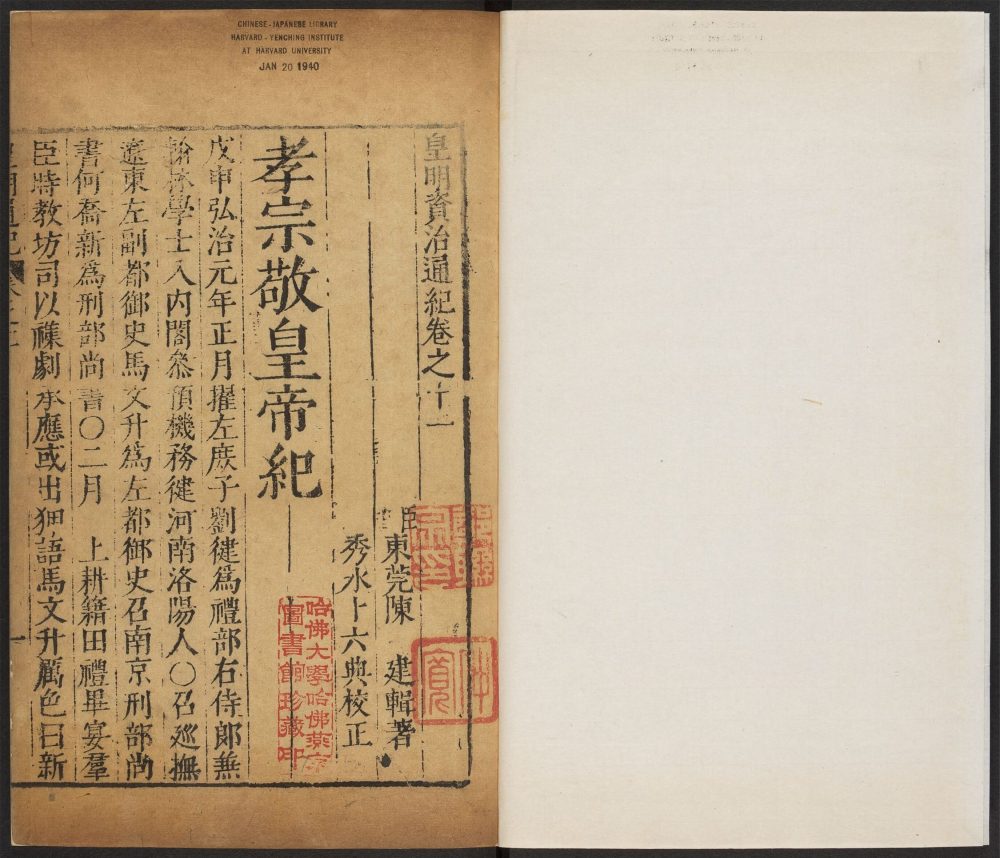 CHINESE-JAPANESE LIBRARY
HARVARD-YENCHING INSTITUTE
AT HARVARD UNIVERSITY
JAN 20 1940
皇明資治通紀卷之十一
臣東莞陳 建輯著
秀水卜六典校正
孝宗敬皇帝紀
戊申弘治元年正月擢左庶子劉健爲禮部右侍郎兼
翰林學士入内閣叅預機務健河南洛陽人〇召廵撫
遼東左副都御史馬文升爲左都御史召南京刑部尚
書何喬新爲刑部尚書〇二月 上耕籍田禮畢宴羣
臣時教坊司以襍劇承應或出狎語馬文升厲色曰新
哈佛大學哈佛燕京
圖書館珍藏印